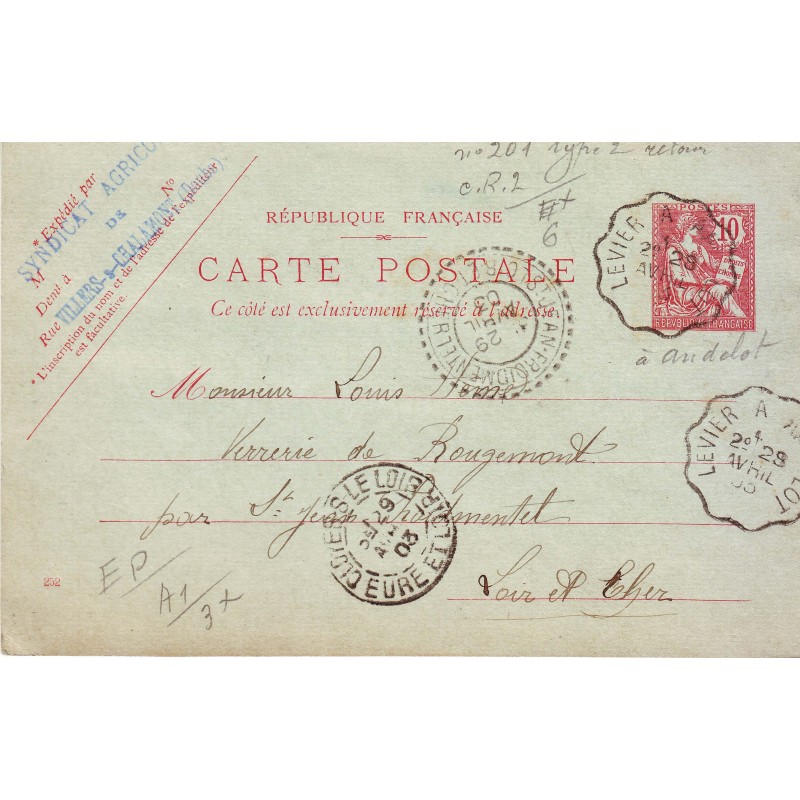 nº 201 type 2 retour
C.R.2
6
* Expédié par
M
Nº
Demt à
Rue
* L'inscription du nom et de l'adresse de l'expéditeur
est facultative.
SYNDICAT AGRICO
DE
VILLERS-s-CHALAMONT (Doubs).
RÉPUBLIQUE FRANÇAISE
CARTE POSTALE
Ce côté est exclusivement réservé à l'adresse.
POSTES
10
RÉPUBLIQUE FRANÇAISE
LEVIER A
28
AVRIL
à andelot
29
AVRIL
03
Monsieur Louis
Verrerie de Rougemont
par St Jean Froidmentel
Loir et Cher
LEVIER A LOT
28
AVRIL
03
CLOYES-S-LE LOIR
29
03
EURE ET LOIR
EP
A1
3+
252